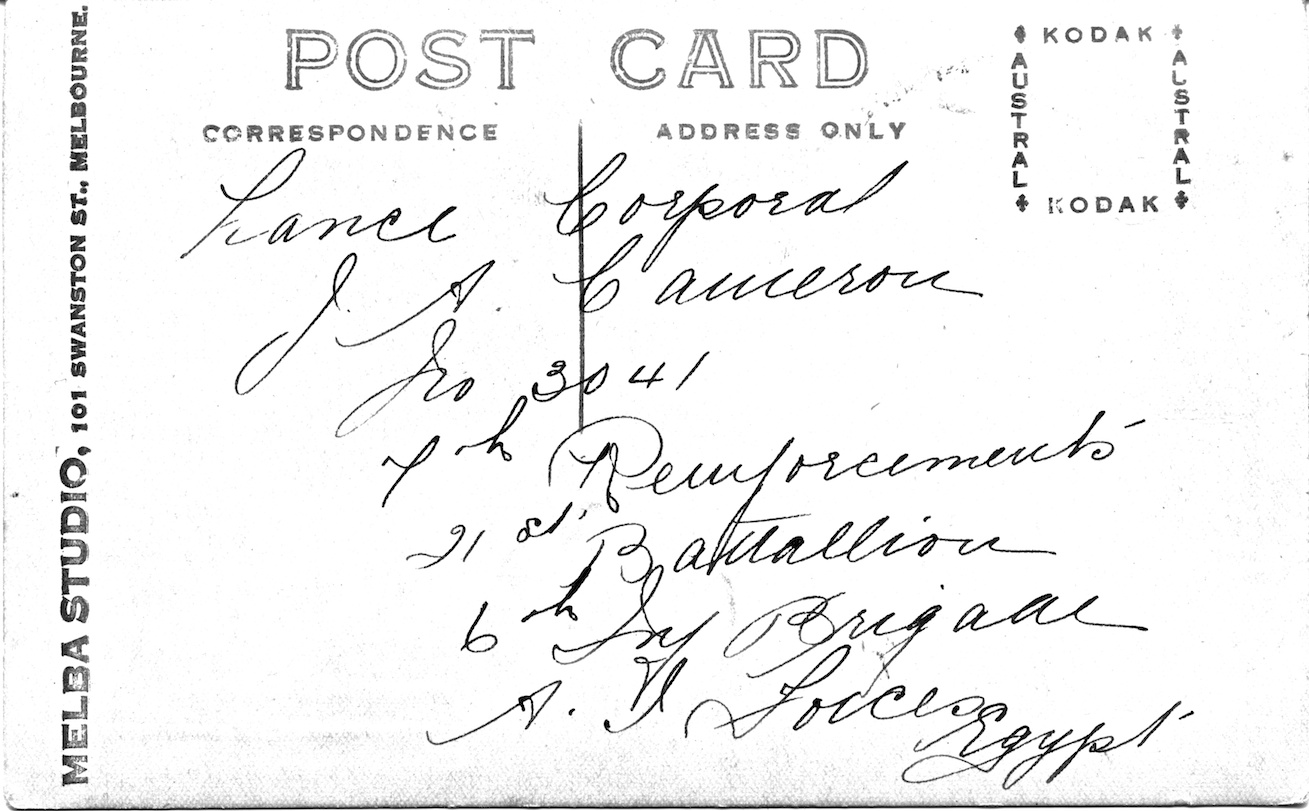 POST CARD
CORRESPONDENCE
ADDRESS ONLY
KODAK
AUSTRAL
AUSTRAL
KODAK
MELBA STUDIO, 101 SWANSTON ST., MELBOURNE.
Lance Corporal
J. A. Cameron
No 3041
7th Reinforcements
21st Battallion
6th Inf Brigade
A. I. Forces
Egypt